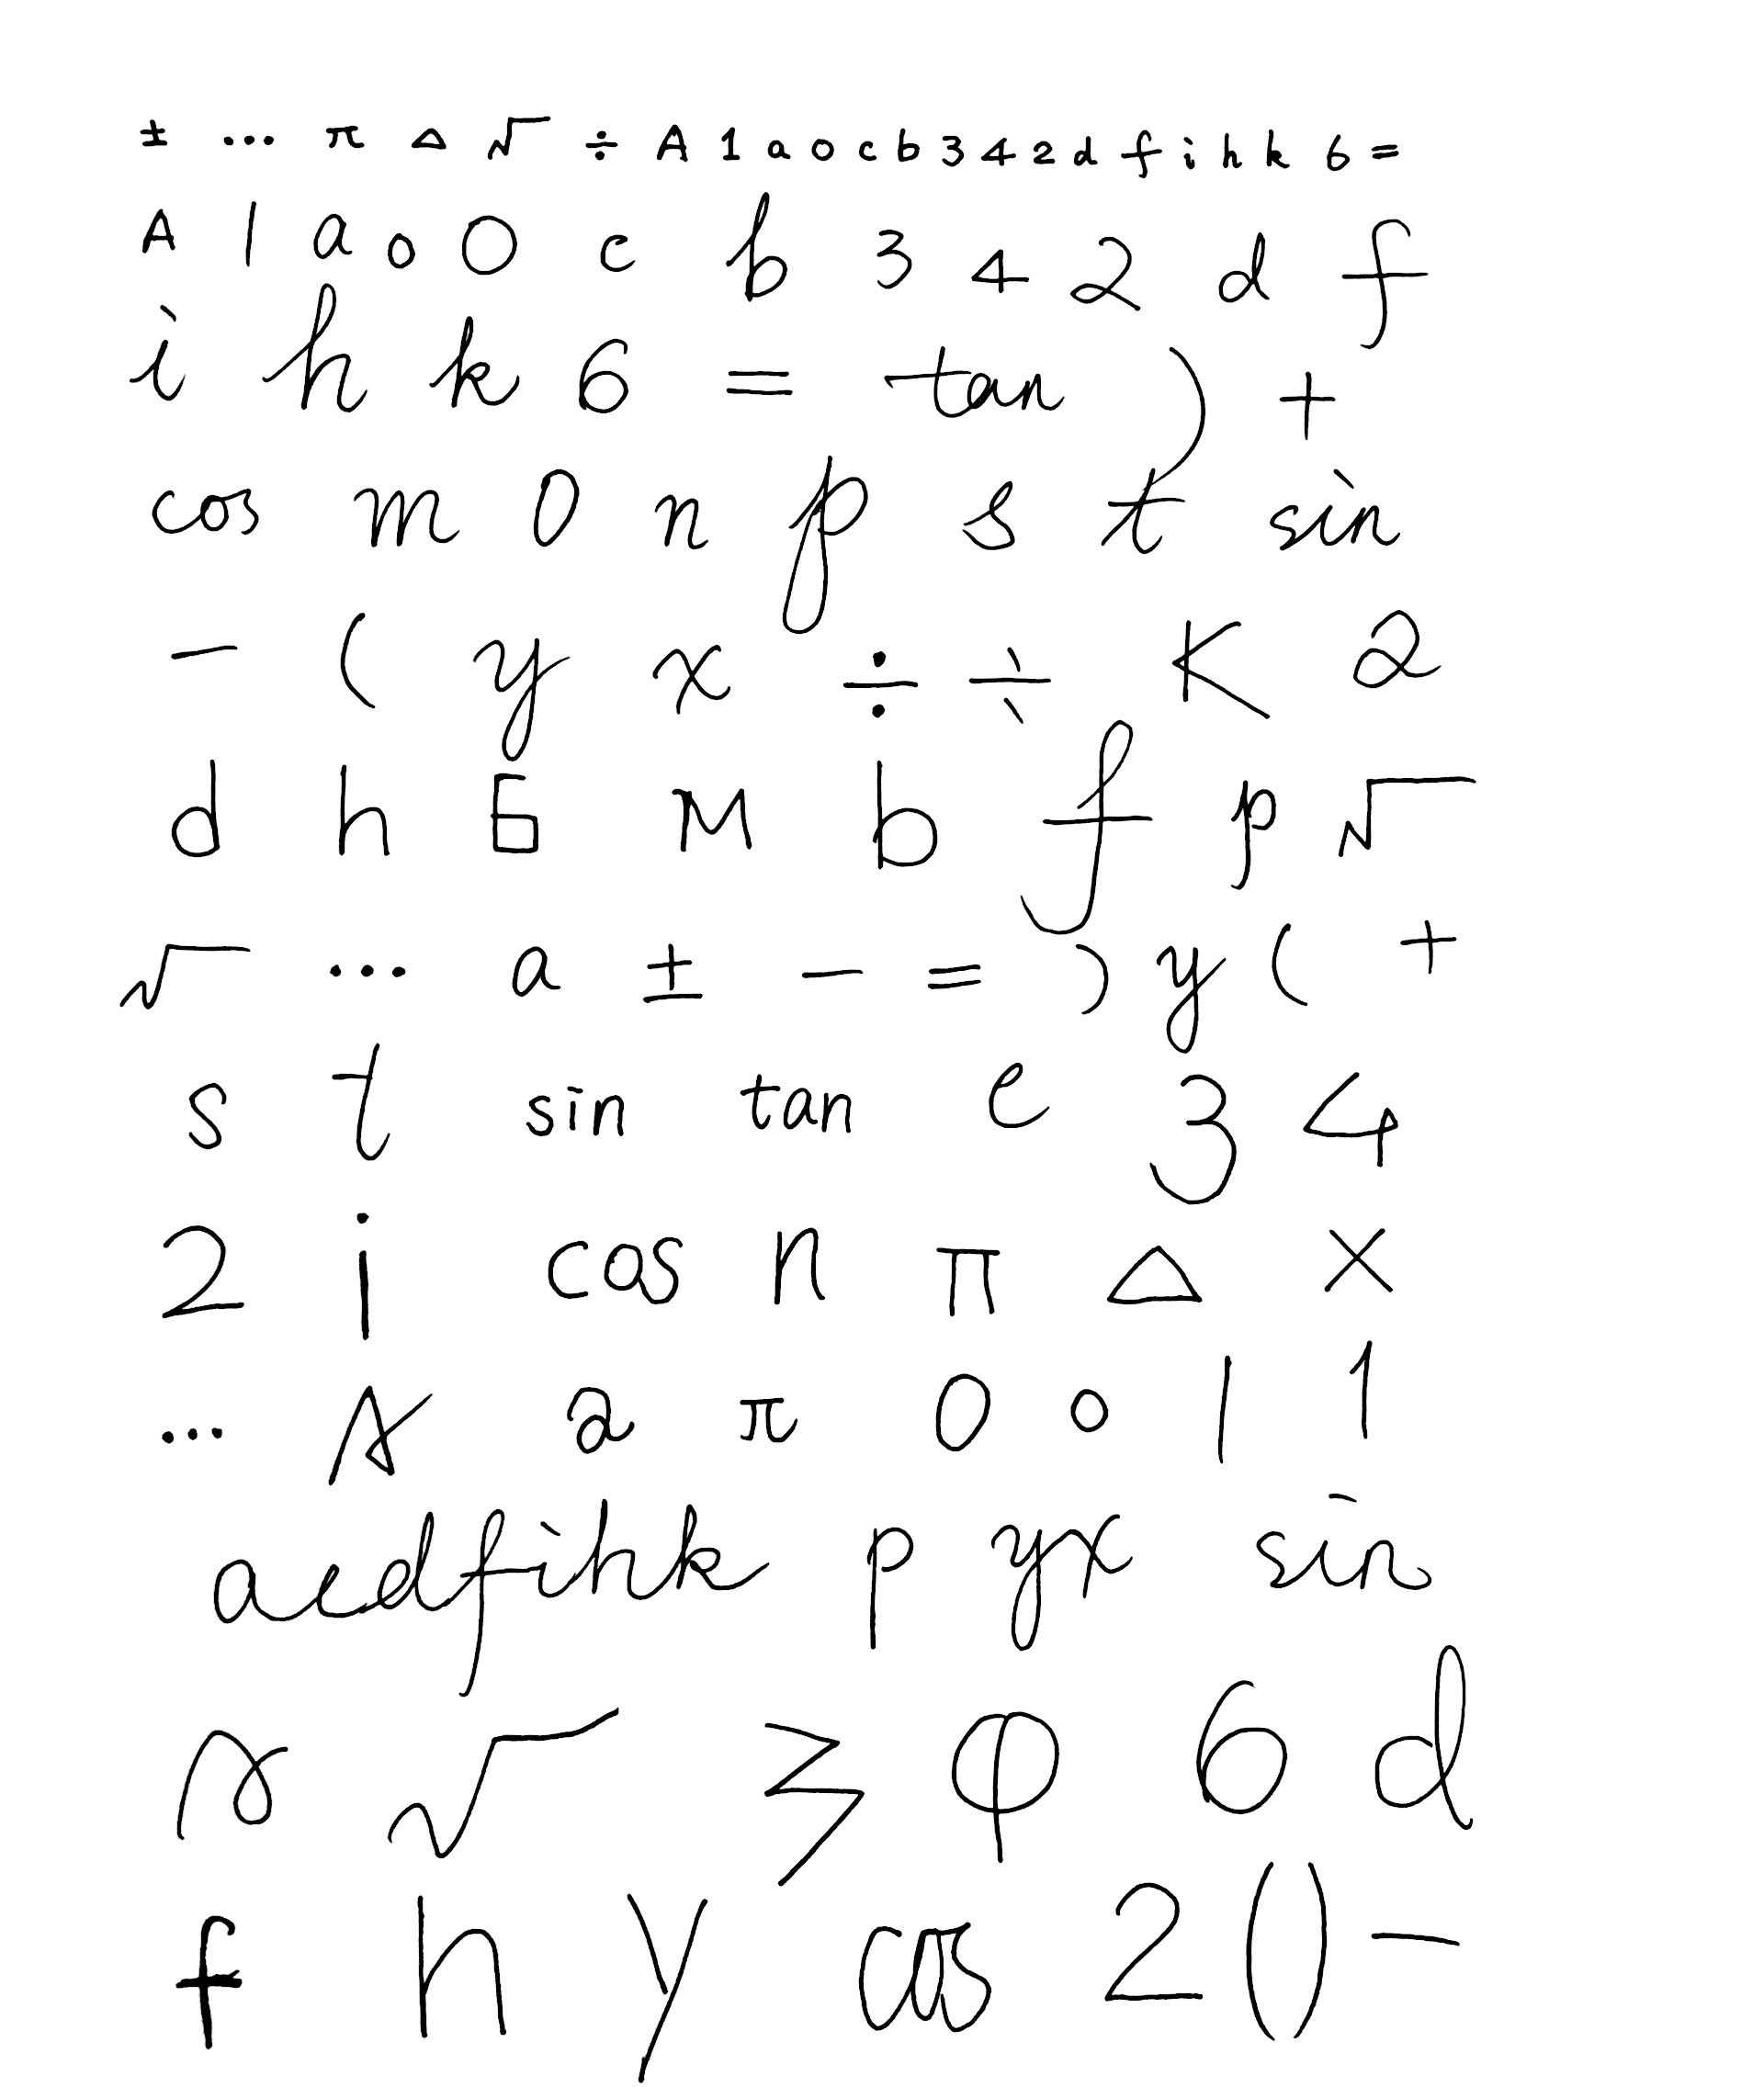 ± ... π △ √ ÷ A 1 a o c b 3 4 2 d f i h k 6 =
A | a o O c b 3 4 2 d f
i h k 6 = tan ) +
cos m 0 n p s t sin
− ( y x ÷ ÷ K 2
d h 6 M b f p √
√ ... a ± − = ) y ( +
s t sin tan e 3 4
2 i cos n π △ ×
... A a π 0 o | 1
aedfihk p yx sin
√ φ 6 d
f h y cos 2 ( ) −